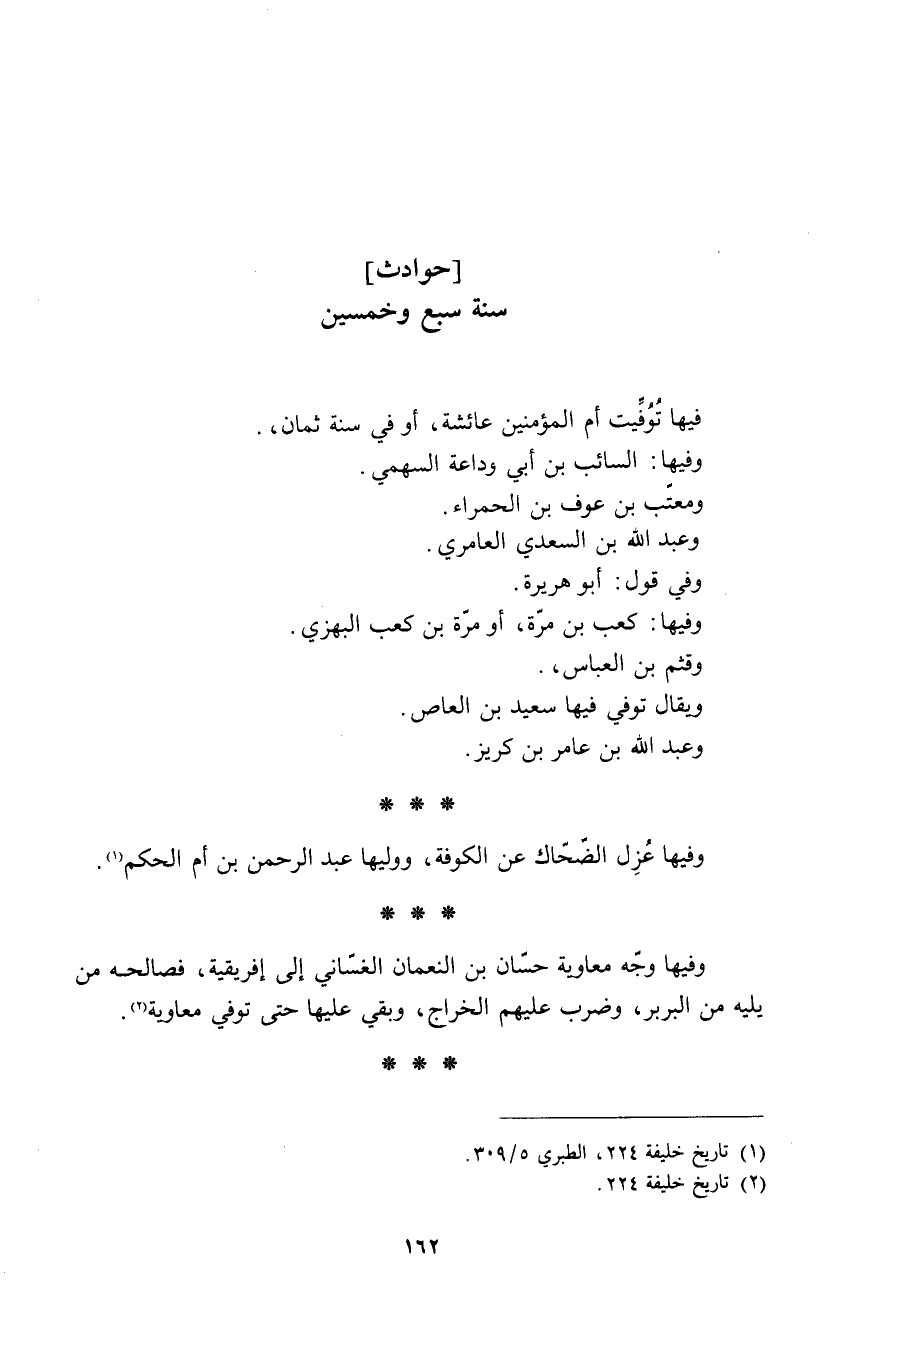 [حوادث]
سنة سبع وخمسين
فيها تُوُفِّيت أم المؤمنين عائشة، أو في سنة ثمان، .
وفيها: السائب بن أبي وداعة السهمي.
ومعتّب بن عوف بن الحمراء.
وعبد الله بن السعدي العامري.
وفي قول: أبو هريرة.
وفيها: كعب بن مرّة، أو مرّة بن كعب البهزي.
وقثم بن العباس، .
ويقال توفي فيها سعيد بن العاص.
وعبد الله بن عامر بن كريز.
* * *
وفيها عُزِل الضّحّاك عن الكوفة، ووليها عبد الرحمن بن أم الحكم(١).
* * *
وفيها وجّه معاوية حسّان بن النعمان الغسّاني إلى إفريقية، فصالحه من
يليه من البربر، وضرب عليهم الخراج، وبقي عليها حتى توفي معاوية(٢).
* * *
(١) تاريخ خليفة ٢٢٤، الطبري ٣٠٩/٥.
(٢) تاريخ خليفة ٢٢٤.
١٦٢